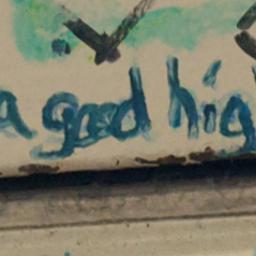 a good hig